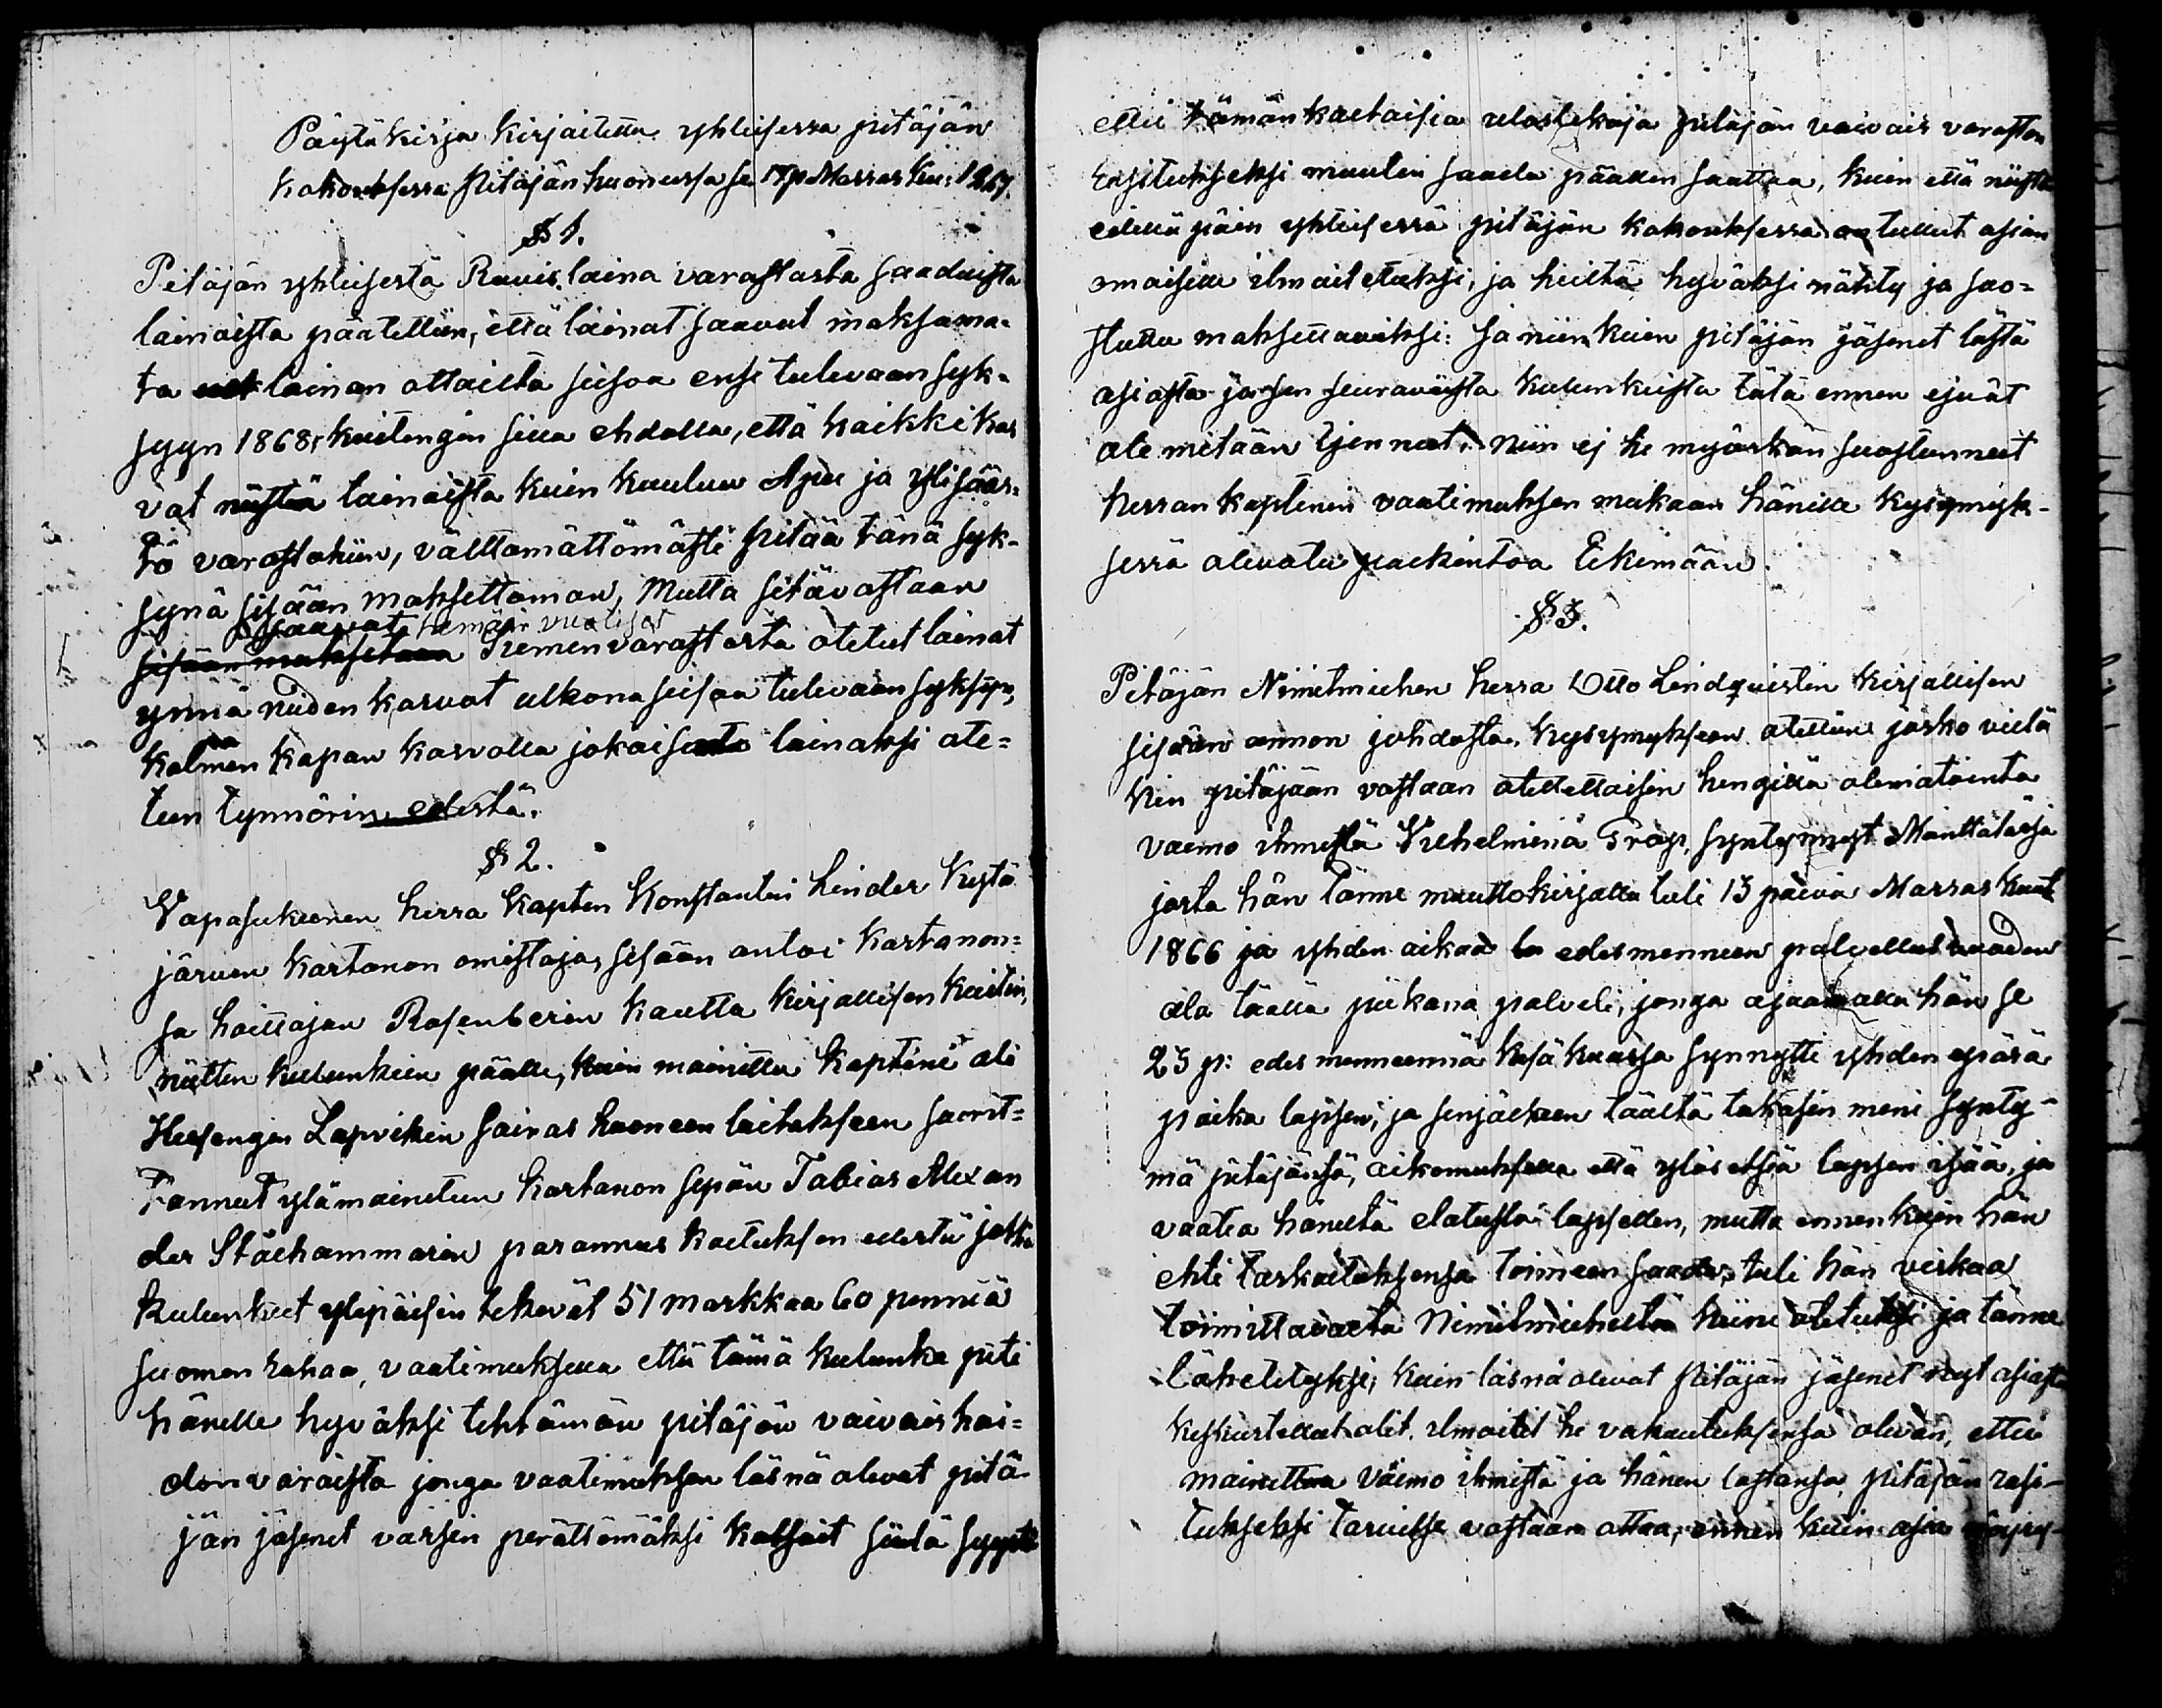 Pöytäkirja kirjoitettu yhteisessä pitäjän
kokouksessa Pitäjänhuoneessa se 17p Marras Ku: 1867.
§ 1.
Pitäjän yhteisestä Ruuis laina varastosta saaduista
lainoista päätettiin, että lainat saavat maksama-
ta lainan ottajilta seisoa ensi tulevaan syk-
syyn 1868, kuitengin sillä ehdolla, että kaikki kas
vat niistä lainoista kuin kuuluu Apu ja ylisääs-
tö varastohin, välttämättömästi pitää tänä syk-
synä sisään maksettaman, Mutta sitävastaan
saavat hämän vuotiset
sisään maksetaan Siemenvarastosta otetut lainat
ynnä niiden kasvat ulkona seisoa tulevaan syksyyn,
kolmen kapan kasvolla jokaisesta lainaksi ote-
tun tynnörin edestä.
§ 2.
Vapasukunen herra kapten Konstantin Linder Kytä
järven kartanon omistaja, sisään antoi kartanon-
sa hoitajan Rosenberin kautta kirjallisen kuitin,
niitten kulunkein päälle, kuin mainittu kapteni oli
Helsengin Lapvikin sairas huoneen laitokseen suorit-
tannut ylämainitun kartanon sepän Tobias Alexan
der Stålhammarin parannus hoituksen edestä jotka
kulunkeet ylipäisin tekevät 51 markkaa 60 penniä
suomen rahaa, vaatimuksella että tämä kulunki piti
hänelle hyväksi tehtämän pitäjän vaivais hoi-
don varoista jonga vaatimuksen läsnä olevat pitä
jän jäsenet varsin perättömäksi katsoit siitä syystä
ettei tämänkaltaisia ulostekoja pitäjän vaivais varaston
rasitukseksi muuten saada päällen saattaa, kuin että niistä
edellä päin yhteisessä pitäjän kokouksessa on tullut asian
omaisille ilmoitetuksi, ja heiltä hyväksi nähty ja suo-
stuttu maksettavaksi: Ja niin kuin pitäjän jäsenet tästä
asiasta ja sen seuraavista kulunkuista tätä ennen ejvät
ole mitään tjenneet, niin ej he myöskän suostunneet
herran kaptenin vaatimuksen mukaan hänelle kysymyk-
sessä olevata palkintoa tekemään.
§ 3.
Pitäjän Nimitmiehen herra Otto Lindqvistin kirjallisen
sisään annon johdosta, kysymykseen otettiin josko vielä
kin pitäjään vastaan otettaisiin hengillä olematointa
vaimo ihmistä Vilhelmiina Grop, syntynnyt Mänttälässä
josta hän tänne muuttokirjalla tuli 13 päivä Marras kuuta
1866 ja yhden aikaa edesmenneen palvellus vuoden
ola täällä piikana palveli, jonga ajaan alla hän se
25 p: edes menneennä kesä kuussa synnytti yhden äpärä
poika lapsen, ja senjälkeen täältä takasin meni synty-
mä pitäjänsä, aikomuksella että ylös etsiä lapsen isää, ja
vaatia häneltä elatusta lapsellen, mutta ennenkuin hän
ehti tarkoituksensa toimeen saada, tuli hän virkaa
toimittavalta Nimitmieheltä kiini otetuksi ja tänne
lähetetyksi; kuin läsnä olevat Pitäjän jäsenet nyt asiasta
keskustellut olit, ilmoitit he vakuutuksensa olevan, ettei
mainittua vaimo ihmistä ja hänen lastansa pitäjän rasi-
tukseksi tarvitse vastaan ottaa, ennen kuin asia